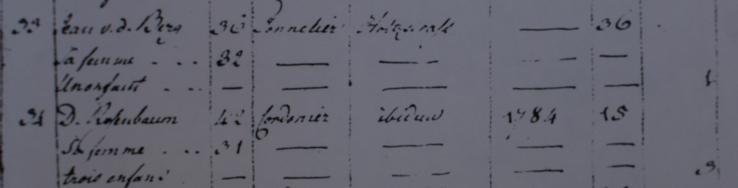 33 Jean v. d. Berg 36 Tonnelier — 36
Sa femme . . . 32 — — — —
Un enfant . . — — — — — 1
34 D. Rosenbaum 42 Cordonier ibidem 1784 15
Sa femme . . 31 — — — —
trois enfans — — — — — 3